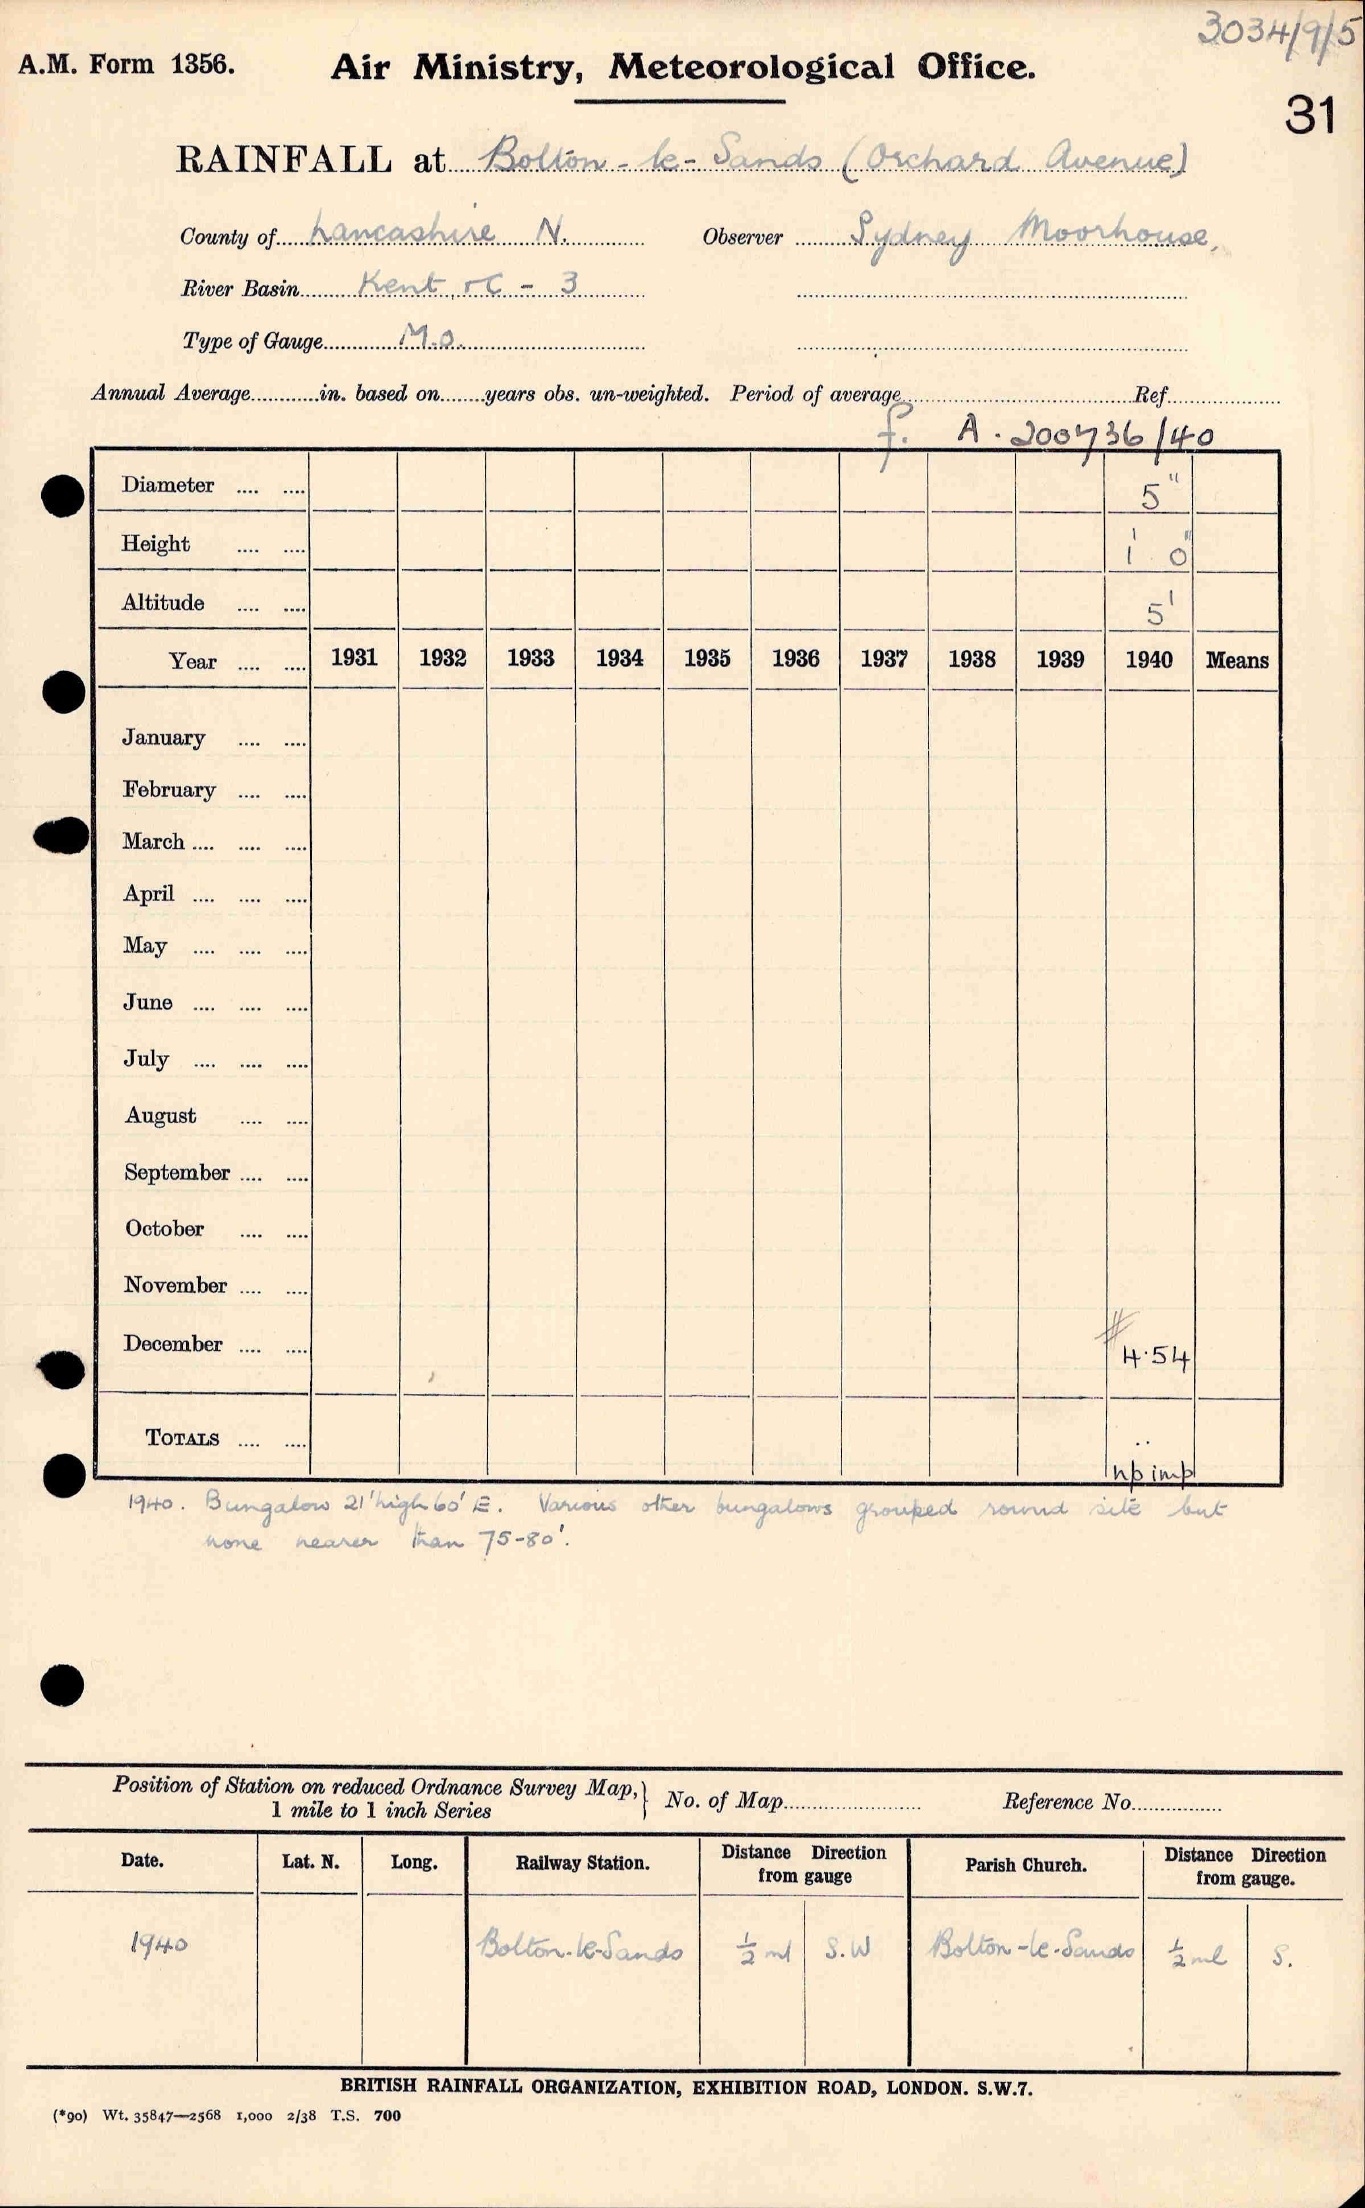 3034/9/5
A.M. Form 1356. Air Ministry, Meteorological Office.
31
RAINFALL at Bolton-le-Sands (Orchard Avenue)
County of Lancashire N. Observer Sydney Moorhouse,
River Basin Kent, &c - 3
Type of Gauge M.O.
Annual Average............in. based on........years obs. un-weighted. Period of average Ref.
f. A. 200736/40
Diameter .... .... 5"
Height .... .... 1' 0"
Altitude .... .... 5'
Year .... .... 1931 1932 1933 1934 1935 1936 1937 1938 1939 1940 Means
January .... ....
February .... ....
March .... .... ....
April .... .... ....
May .... .... ....
June .... .... ....
July .... .... ....
August .... ....
September .... ....
October .... ....
November .... ....
December .... .... # 4.54
TOTALS .... .... ..
np imp
1940. Bungalow 21' high 60' E. Various other bungalows grouped round site but
none nearer than 75-80'.
Position of Station on reduced Ordnance Survey Map,} No. of Map Reference No.
1 mile to 1 inch Series
Date. Lat. N. Long. Railway Station. Distance Direction from gauge Parish Church. Distance Direction from gauge.
1940 Bolton-le-Sands ½ ml S.W Bolton-le-Sands ½ ml S.
BRITISH RAINFALL ORGANIZATION, EXHIBITION ROAD, LONDON. S.W.7.
(*90) Wt. 35847—2568 1,000 2/38 T.S. 700